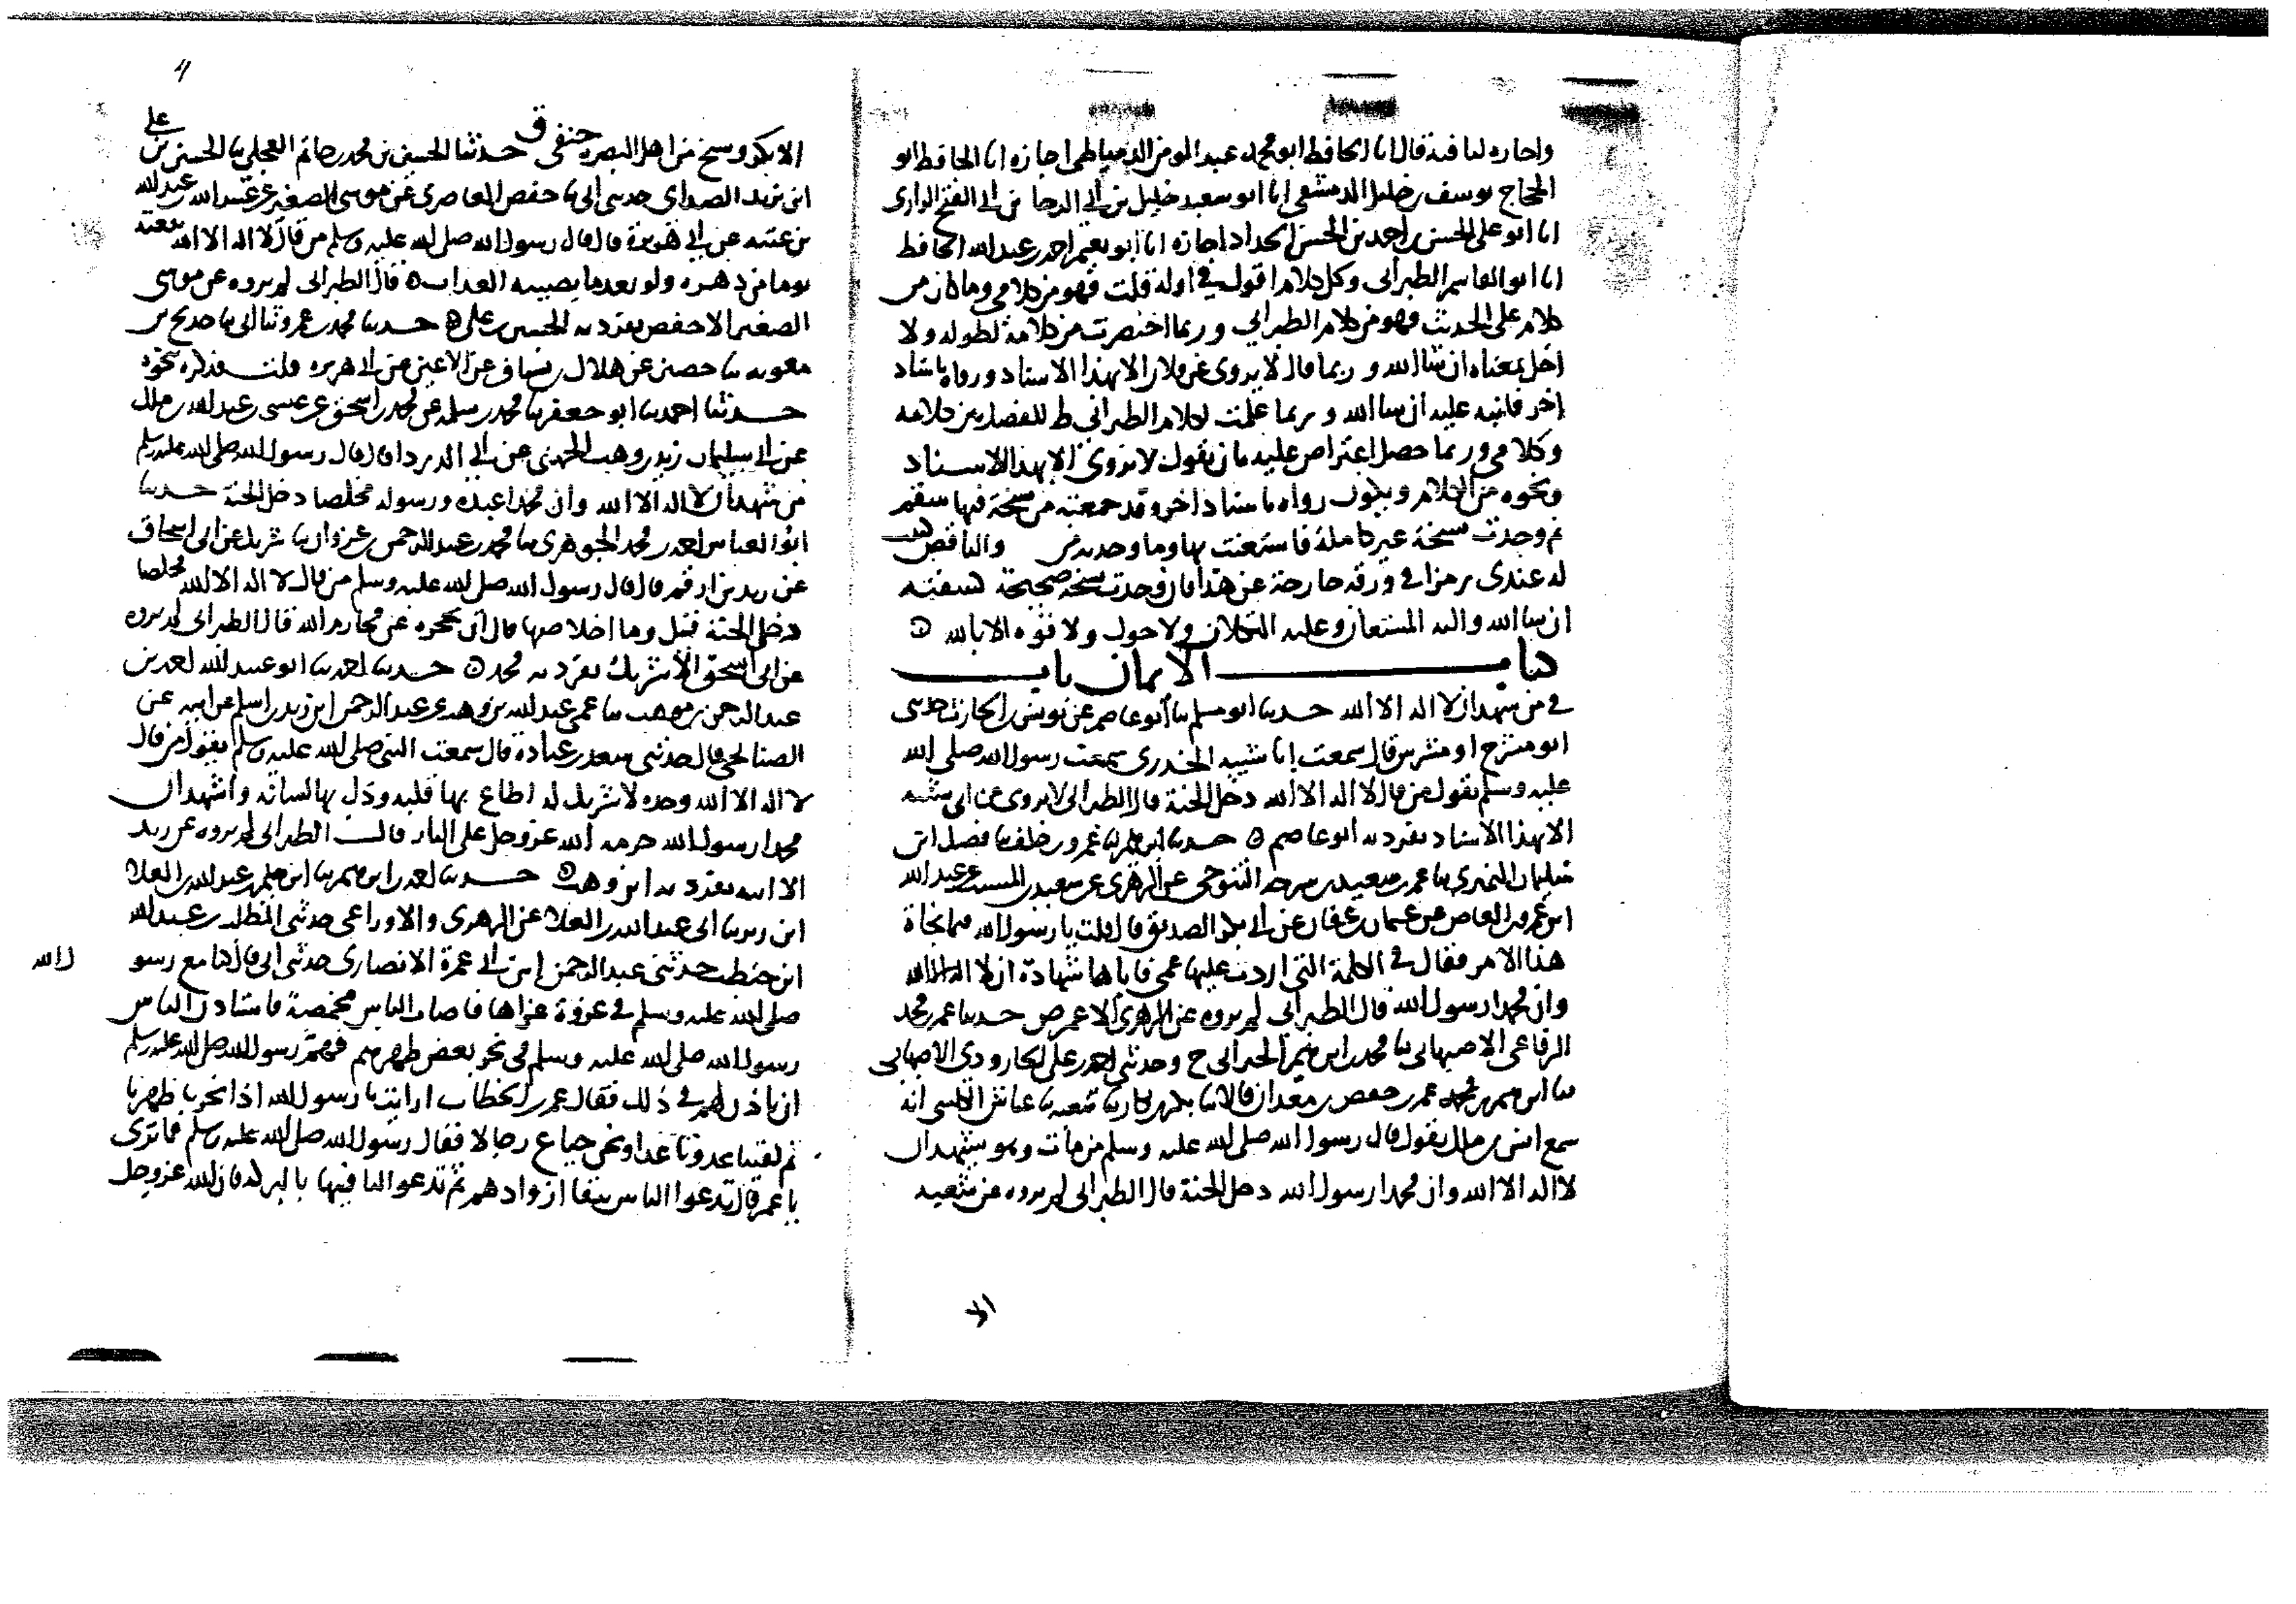 واجازه لنا فيه قال انا الحافظ ابو محمد عبد المومن الدمياطي اجازه انا الحافظ ابو
الحجاج يوسف بن خليل الدمشقي انا ابو سعيد خليل بن ابي الرجا بن ابي الفتح الراراني
انا ابو علي الحسن بن احمد بن الحسن الحداد اجازه انا ابو نعيم احمد بن عبد الله الحافظ
انا ابو القاسم الطبراني وكل كلام اقول في اوله قلت فهو من كلامي وما كان من
كلام على الحديث فهو من كلام الطبراني وربما اختصرت من كلامه لطوله ولا
اخل بمعناه ان شا الله وربما قال لا يروى عن فلان الا بهذا الاسناد ورواه باسناد
اخر فانبه عليه ان شا الله وربما علمت لكلام الطبراني ط للفصل بين كلامه
وكلامي وربما حصل اعتراض عليه بان يقول لا يروى الا بهذا الاسناد
ونحوه من الكلام ويكون رواه باسناد اخر وقد جمعته من نسخة فيها سقم
ثم وجدت نسخة غير كاملة فاستعنت بها وما وجدته والناقص
له عندي رمز في ورقه خارجة عن هذا فان وجدت نسخة صحيحة
ان شا الله والله المستعان وعليه التكلان ولا حول ولا قوه الا بالله
كتاب الايمان باب
في من شهد ان لا اله الا الله حدثنا ابو مسلم ثنا ابو عاصم عن يونس بن الحارث حدثني
ابو مشرح او مشرس قال سمعت ابا شيبه الخدري سمعت رسول الله صلى الله
عليه وسلم يقول من قال لا اله الا الله دخل الجنة قال الطبراني لا يروى عن ابي شيبه
الا بهذا الاسناد تفرد به ابو عاصم حدثنا ثنا عمرو بن خلف ثنا فضل بن
سليمان النميري ثنا عمر بن سعيد بن سرحه التنوخي عن الزهري عن سعيد بن المسيب عن عبد الله
ابن عمرو بن العاص عن عثمان بن عفان عن ابي بكر الصديق قال قلت يا رسول الله فيما نجاة
هذا الامر فقال في الكلمة التي اردت عليها عمي فاباها شهادة ان لا اله الا الله
وان محمدا رسول الله قال الطبراني لم يروه عن الزهري الا عمر حدثنا عمر بن محمد
الاصبهاني ثنا محمد بن ابراهيم الحيراني ح وحدثني احمد بن علي الجارودي الاصبهاني
ثنا ابراهيم بن محمد عمر بن حفص بن معدان قالا ثنا بكر بن بكار ثنا شعبه ثنا عياش الكليبي انه
سمع انس بن ملك يقول قال رسول الله صلى الله عليه وسلم من مات وهو يشهد ان
لا اله الا الله وان محمدا رسول الله دخل الجنة قال الطبراني لم يروه عن شعبه
الا
الا بكر وشيخ من اهل البصره حنفي ق حدثنا الحسين بن محمد بن حاتم العجلي ثنا الحسين بن علي
ابن يزيد الصدائي حدثني ابي ثنا حفص الغاضري عن موسى الصغير عن عبيد الله بن عبد الله
بن عتبه عن ابي هريرة قال قال رسول الله صلى الله عليه وسلم من قال لا اله الا الله نفعته
يوما من دهره ولو بعد ما يصيبه العذاب قال الطبراني لم يروه عن موسى
الصغير الا حفص تفرد به الحسين بن علي حدثنا محمد بن عمرو ثنا ابي ثنا حديج بن
معويه ثنا حصين عن هلال بن يساف عن الاغر عن ابي هريره قلت فذكره نحوه
حدثنا احمد ثنا ابو جعفر ثنا محمد بن سلمه عن محمد بن اسحق عن عيسى بن عبد الله بن ملك
عن ابي سليمان زيد بن وهب الجهني عن ابي الدرداء قال قال رسول الله صلى الله عليه وسلم
من شهد ان لا اله الا الله وان محمدا عبده ورسوله مخلصا دخل الجنة حدثنا
ابو العباس احمد بن محمد الجوهري ثنا محمد بن عبد الرحمن بن غزوان ثنا شريك عن ابي اسحاق
عن زيد بن ارقم قال قال رسول الله صلى الله عليه وسلم من قال لا اله الا الله مخلصا
دخل الجنة قيل وما اخلاصها قال ان تحجزه عن محارم الله قال الطبراني لم يروه
عن ابي اسحق الا شريك تفرد به محمد حدثنا احمد ثنا ابو عبيد الله احمد بن
عبد الرحمن بن وهب ثنا عمي عبد الله بن وهب عن عبد الرحمن بن زيد بن اسلم عن ابيه عن
الصنابحي قال حدثني سعد بن عبادة قال سمعت النبي صلى الله عليه وسلم يقول من قال
لا اله الا الله وحده لا شريك له اطاع بها قلبه وذل بها لسانه واشهد ان
محمدا رسول الله حرمه الله عز وجل على النار قال الطبراني لم يروه عن زيد
الا ابنه تفرد به ابن وهب حدثنا احمد بن ابراهيم ثنا ابراهيم بن عبد الله بن العلا
ابن زبر ثنا ابي عبد الله بن العلا عن الزهري والاوزاعي حدثني المطلب بن عبد الله
ابن حنطب حدثني عبد الرحمن بن ابي عمرة الانصاري حدثني ابي قال كنا مع رسو
ل الله
صلى الله عليه وسلم في غزوة غزاها فاصاب الناس مخمصة فاستاذن الناس
رسول الله صلى الله عليه وسلم في نحر بعض ظهرهم فهم رسول الله صلى الله عليه وسلم
ان ياذن لهم في ذلك فقال عمر بن الخطاب ارايت يا رسول الله اذا نحرنا ظهرنا
ثم لقينا عدونا غدا ونحن جياع رجالا فقال رسول الله صلى الله عليه وسلم فما ترى
يا عمر قال تدعوا الناس ببقايا ازوادهم ثم تدعوا لنا فيها بالبركه فان الله عز وجل